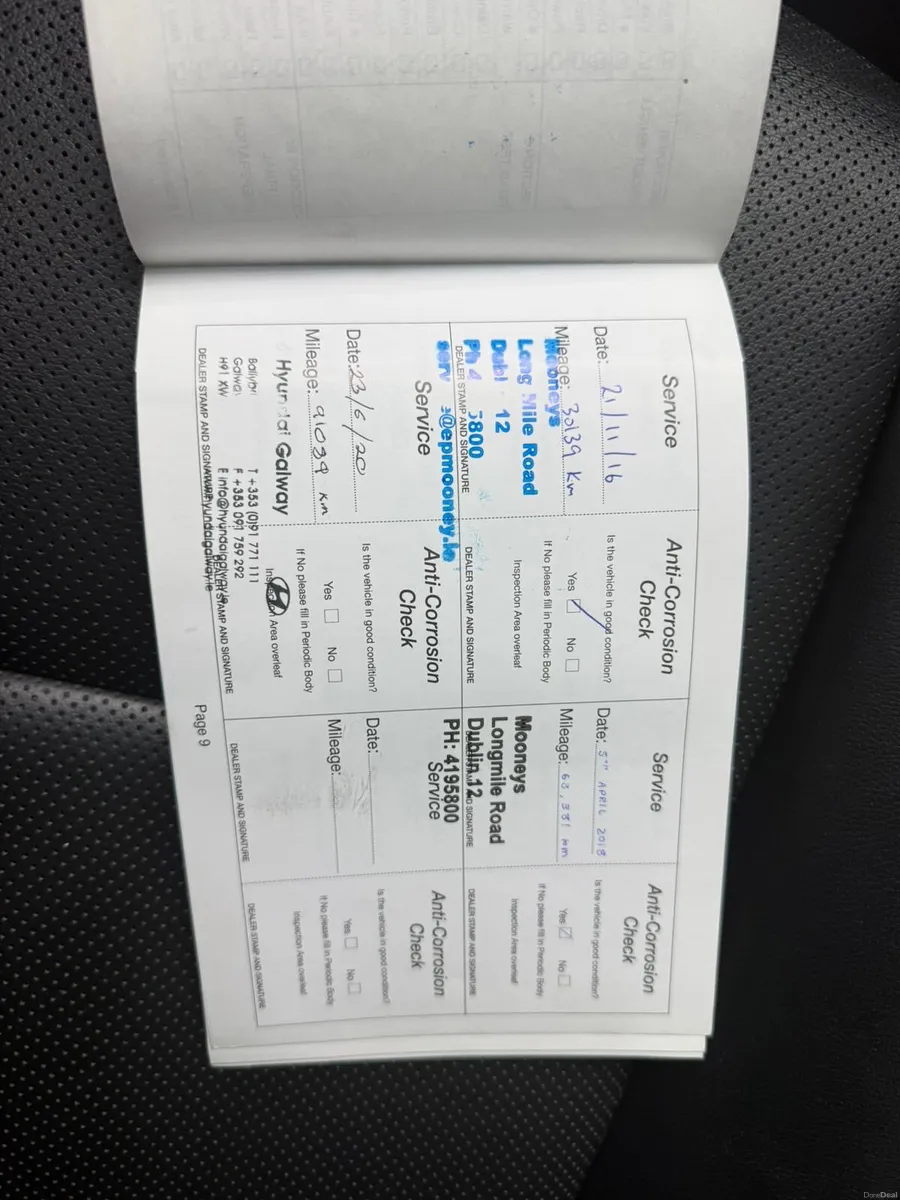 Service
Date: 21/11/16
Mileage: 30139 Km
Mooneys
Long Mile Road
Dubl 12
Ph 4 5800
serv e@epmooney.ie
DEALER STAMP AND SIGNATURE
Anti-Corrosion
Check
Is the vehicle in good condition?
Yes No
If No please fill in Periodic Body
Inspection Area overleaf
DEALER STAMP AND SIGNATURE
Service
Date: 5TH APRIL 2018
Mileage: 63,381 km
Mooneys
Longmile Road
Dublin 12
PH: 4195800
DEALER STAMP AND SIGNATURE
Anti-Corrosion
Check
Is the vehicle in good condition?
Yes No
If No please fill in Periodic Body
Inspection Area overleaf
DEALER STAMP AND SIGNATURE
Service
Date: 23/6/20
Mileage: 91039 km
Hyundai Galway
T +353 (0)91 771 111
F +353 091 759 292
H91 XW E info@hyundaigalway.ie
www.hyundaigalway.ie
DEALER STAMP AND SIGNATURE
Anti-Corrosion
Check
Is the vehicle in good condition?
Yes No
If No please fill in Periodic Body
Inspection Area overleaf
DEALER STAMP AND SIGNATURE
Service
Date:
Mileage:
DEALER STAMP AND SIGNATURE
Anti-Corrosion
Check
Is the vehicle in good condition?
Yes No
If No please fill in Periodic Body
Inspection Area overleaf
DEALER STAMP AND SIGNATURE
Page 9
DoneDeal